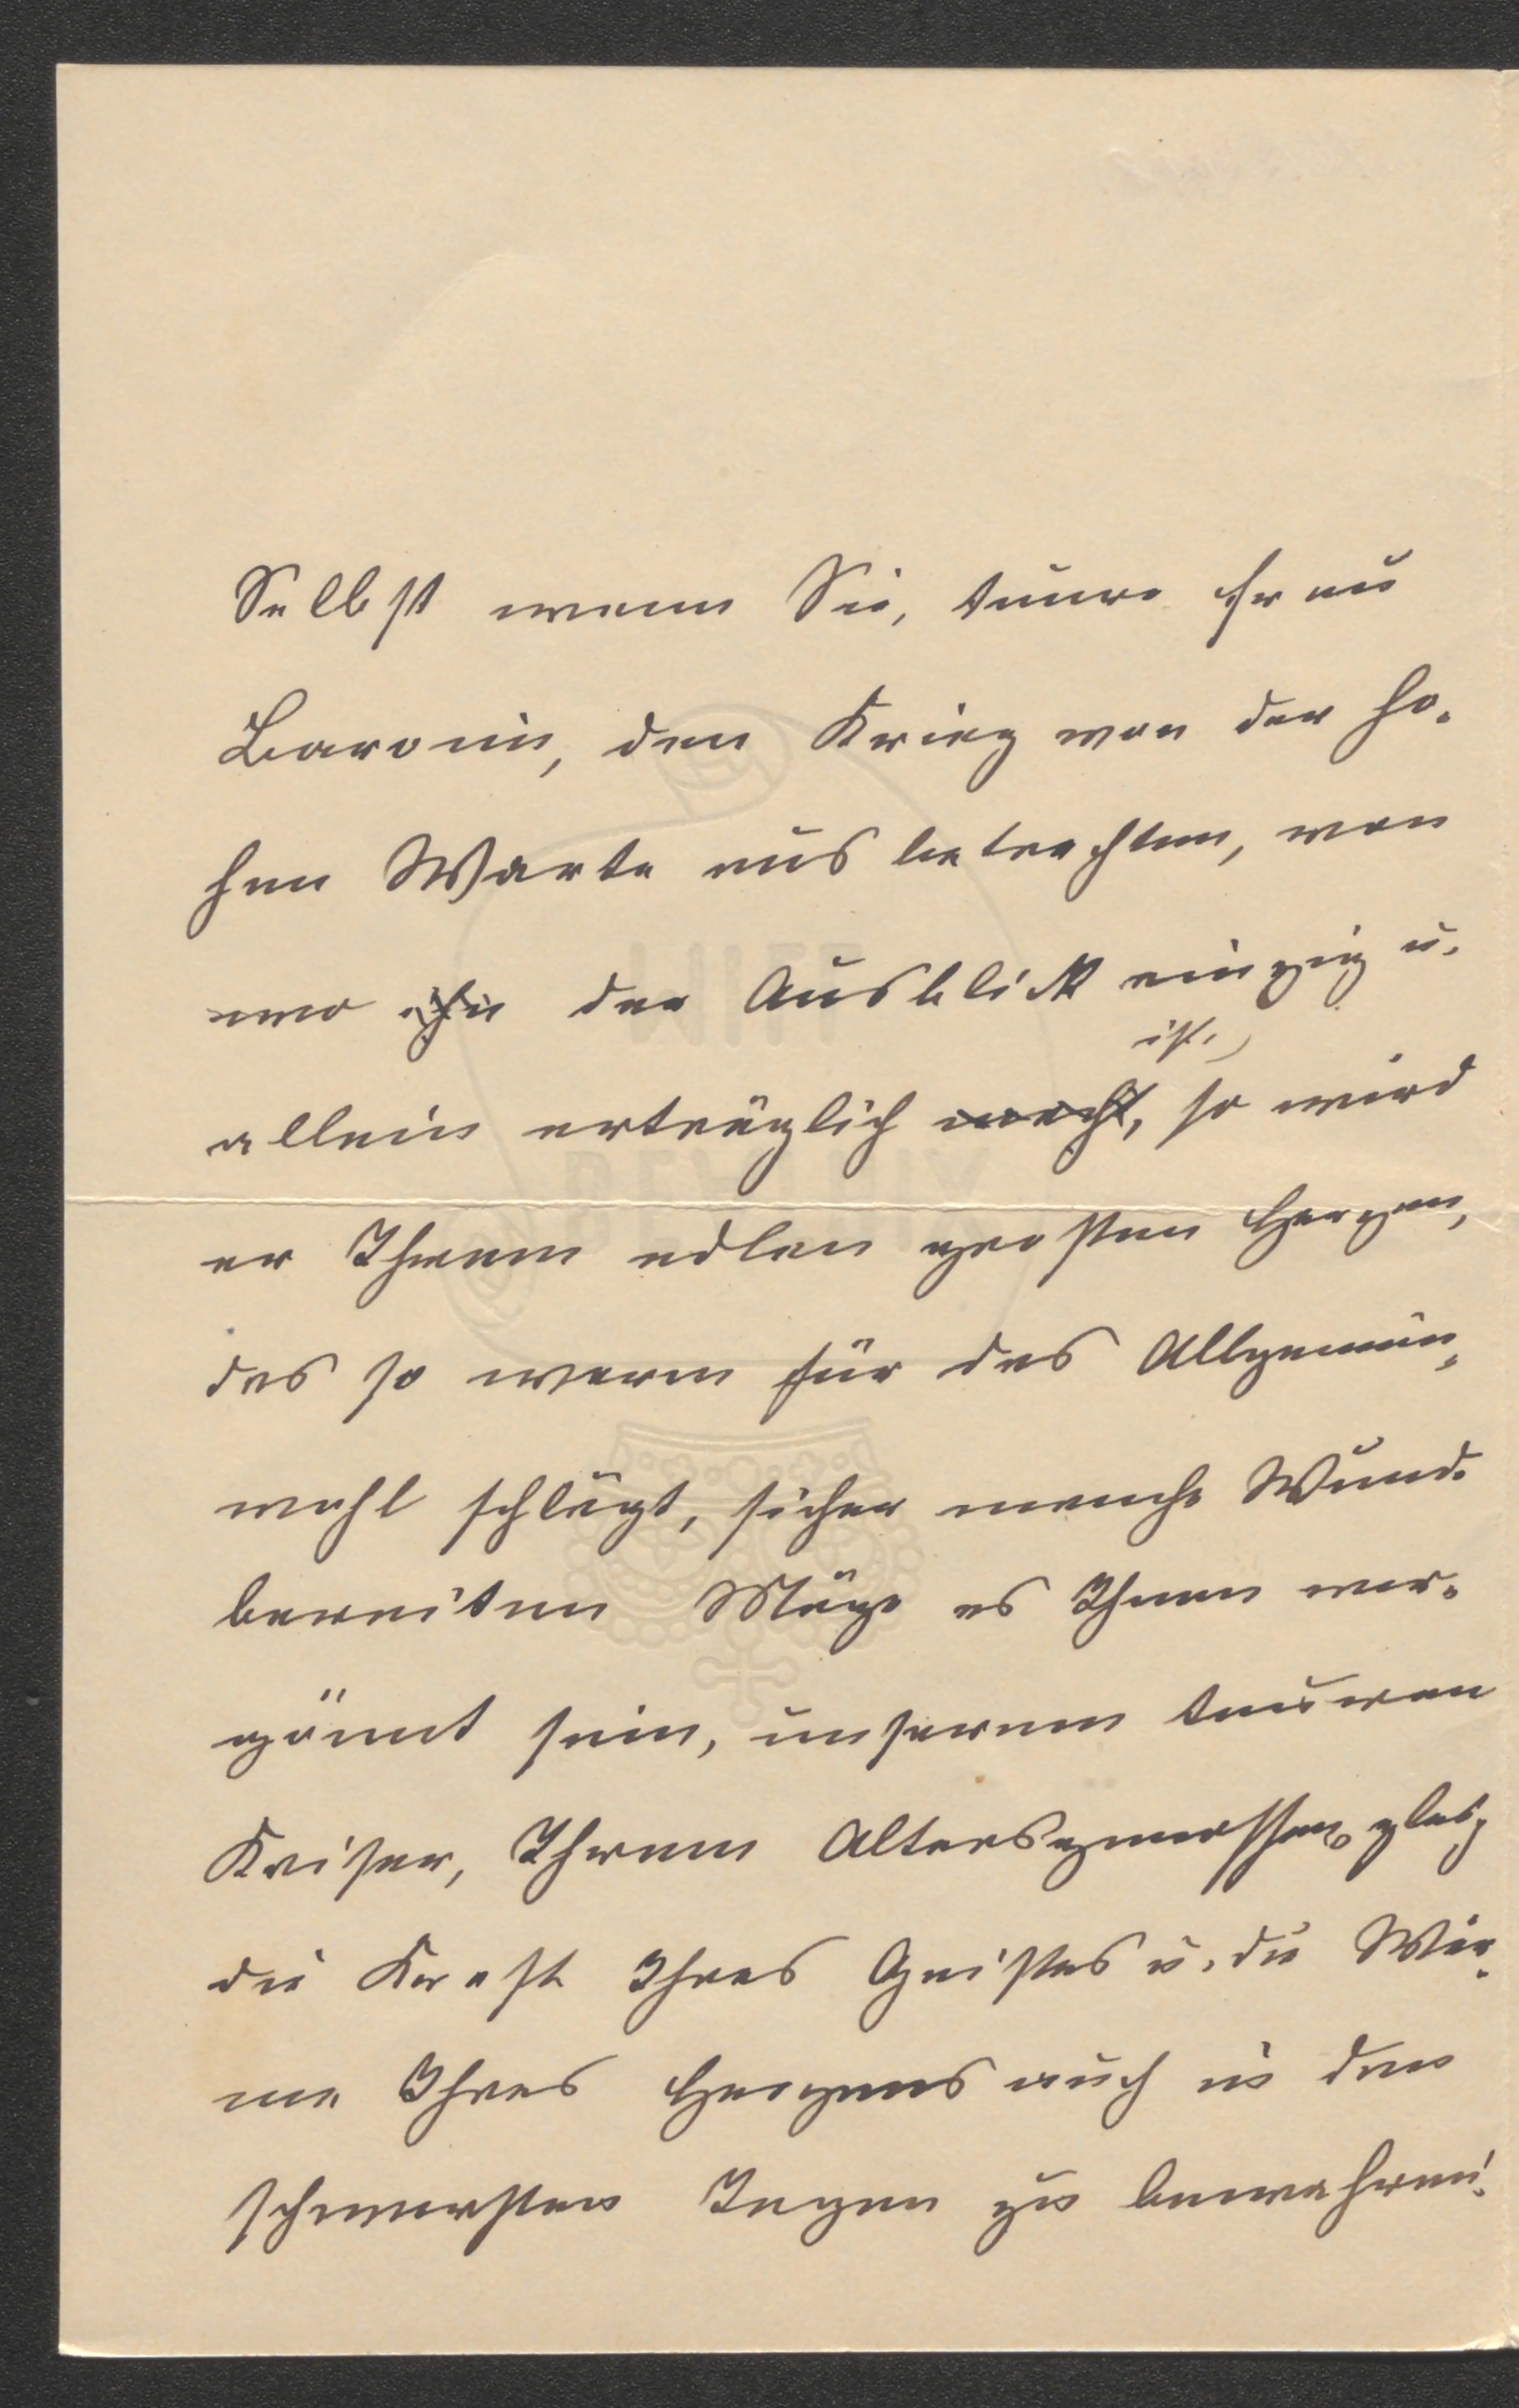 Selbst wenn Sie, teure Frau
Baronin, den Krieg von der ho-
hen Warte aus betrachten, von
wo ihn der Ausblick einzig u.
ist,
allein erträglich macht, so wird
er Ihrem edlen großen Herzen,
das so warm für das Allgemein-
wohl schlägt, sicher manche Wunde
bereiten Möge es Ihnen ver-
gönnt sein, unserem teueren
Kaiser, Ihrem Altersgenossen, gleich
die Kraft Ihres Geistes u. die Wär-
me Ihres Herzens auch in den
schwersten Tagen zu bewahren!